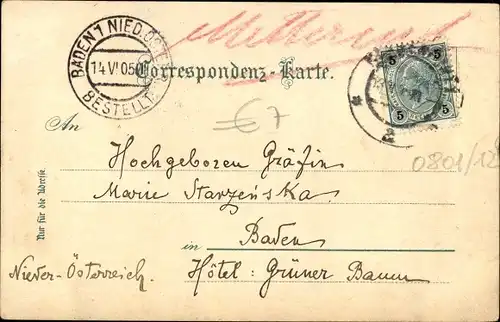 BADEN 1 NIED. ÖST.
14 VI 05
BESTELLT.
Correspondenz-Karte.
5 5
5 5
2
€ 7
0801/12
An
Hochgeboren Gräfin
Marie Starzeńska
in Baden
Nieder-Österreich.
Hôtel: Grüner Baum
Nur für die Adresse.